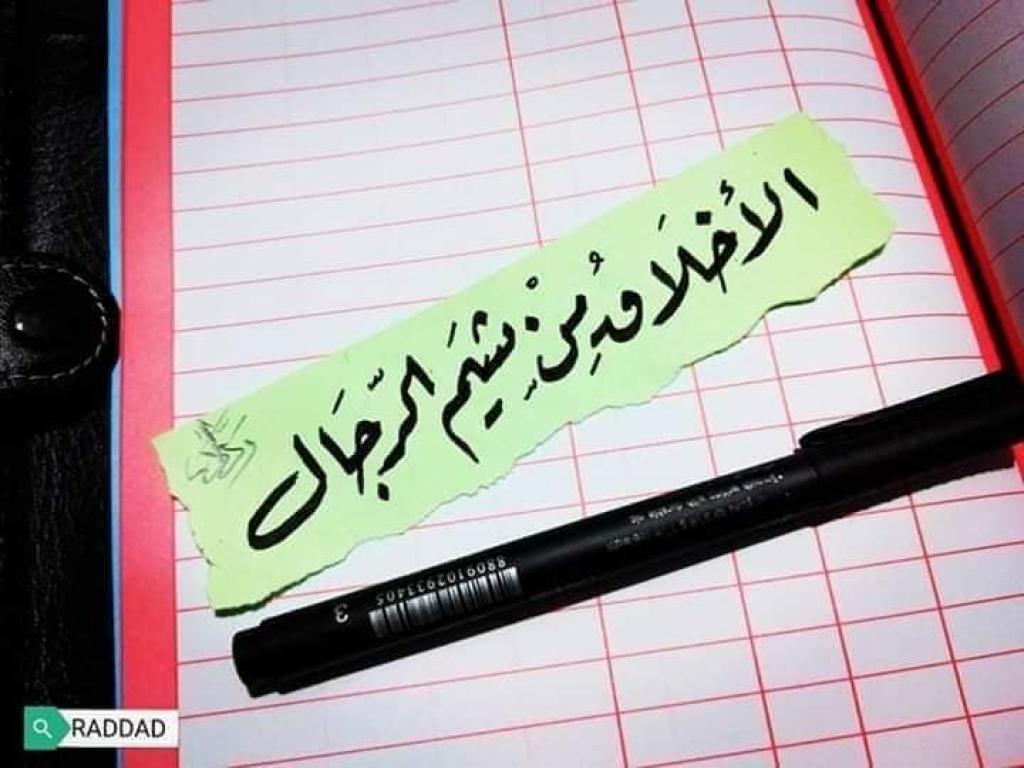 الأخلَاقُ مِنْ شِيَم الرِّجَال
8809102933405
3
RADDAD